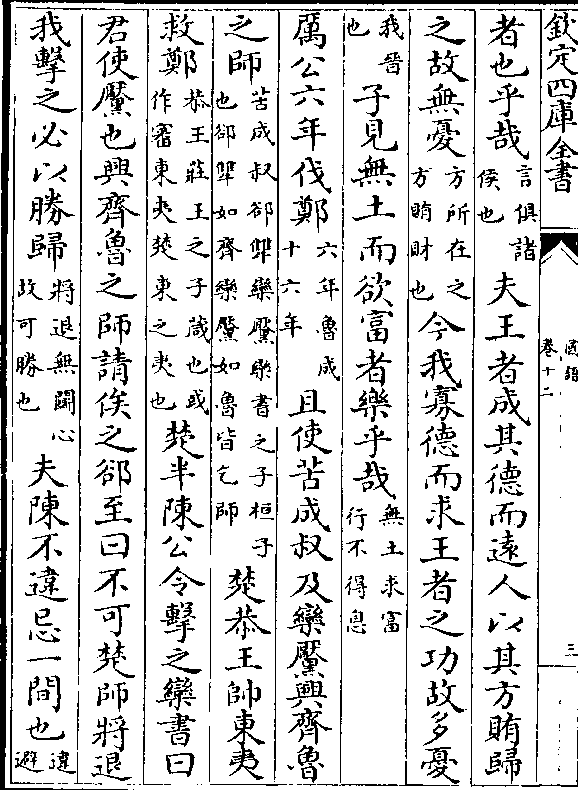 欽定四庫全書
國語
卷十二
三
者也乎哉言俱諸侯也夫王者成其德而遠人以其方賄歸
之故無憂方所在之方賄財也今我寡德而求王者之功故多憂
我晉也子見無土而欲富者樂乎哉無土求富行不得息
厲公六年伐鄭六年魯成十六年且使苦成叔及欒黶興齊魯
之師苦成叔郤犨欒黶欒書之子桓子也郤犨如齊欒黶如魯皆乞師楚恭王帥東夷
救鄭恭王莊王之子葴也或作審東夷楚東之夷也楚半陳公令擊之欒書曰
君使黶也興齊魯之師請俟之郤至曰不可楚師將退
我擊之必以勝歸將退無鬭心故可勝也夫陳不違忌一間也違避